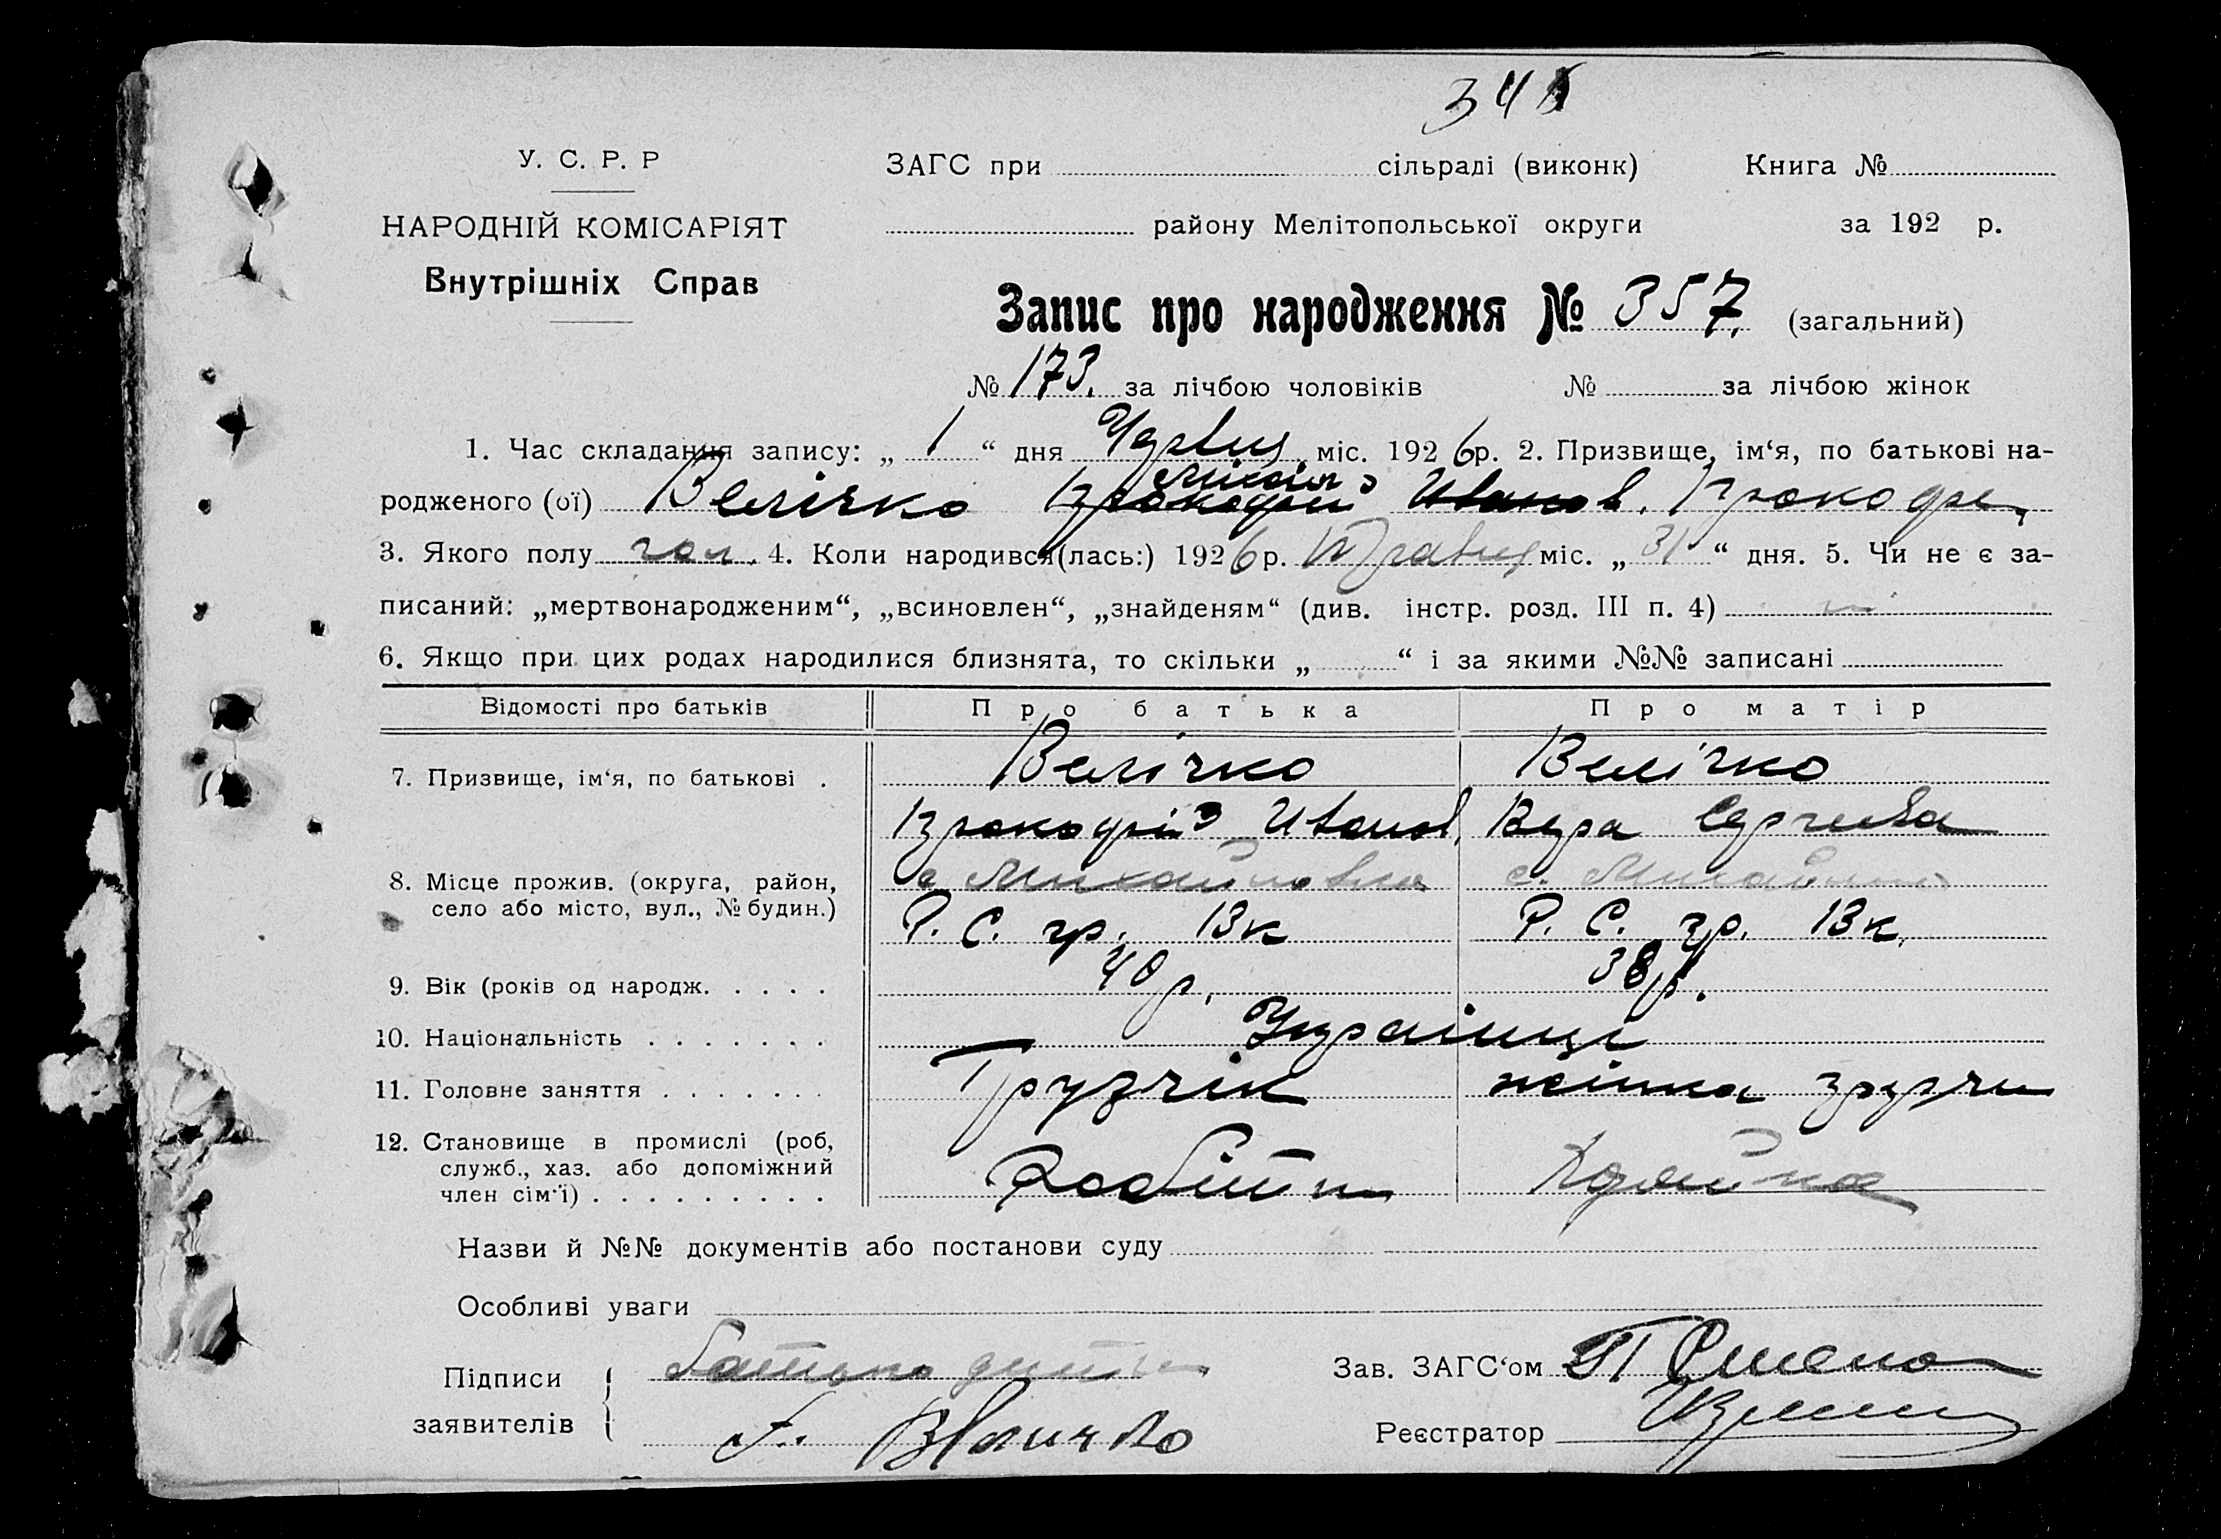 34
У. С. Р. Р
ЗАГС при сільраді (виконк) Книга №
НАРОДНІЙ КОМІСАРІЯТ
району Мелітопольської округи за 192 р.
Внутрішніх Справ
Запис про народження № 357. (загальний)
№ 173. за лічбою чоловіків № за лічбою жінок
1. Час складання запису: „ 1 “ дня Червня міс. 1926 р. 2. Призвище, ім‘я, по батькові на-
родженого (ої) Велічко Прокофій Іванов. Прокофе.
3. Якого полу чол. 4. Коли народився(лась:) 1926 р. Травня міс. „ 31 “ дня. 5. Чи не є за-
писаний: „мертвонародженим“, „всиновлен“, „знайденям“ (див. інстр. розд. III п. 4) ні
6. Якщо при цих родах народилися близнята, то скільки „ “ і за якими №№ записані
Відомості про батьків Про батька Про матір
7. Призвище, ім‘я, по батькові . Велічко Велічко
Прокофій Иванов. Вера Сергиева
8. Місце прожив. (округа, район, с Михайловка с.
село або місто, вул., № будин.) Р. С. гр. Вк Р. С. гр. Вк.
9. Вік (років од народж. . . . . 40 р. 38 р.
10. Національність . . . . . . . Українці
11. Головне заняття . . . . . . . Грузчік жінка грузчи
12. Становище в промислі (роб,
служб., хаз. або допоміжний
член сім‘ї) . . . . . . . . . Робітн
Назви й №№ документів або постанови суду
Особливі уваги
Підписи батько дити Зав. ЗАГС‘ом
заявителів Величко Реєстратор